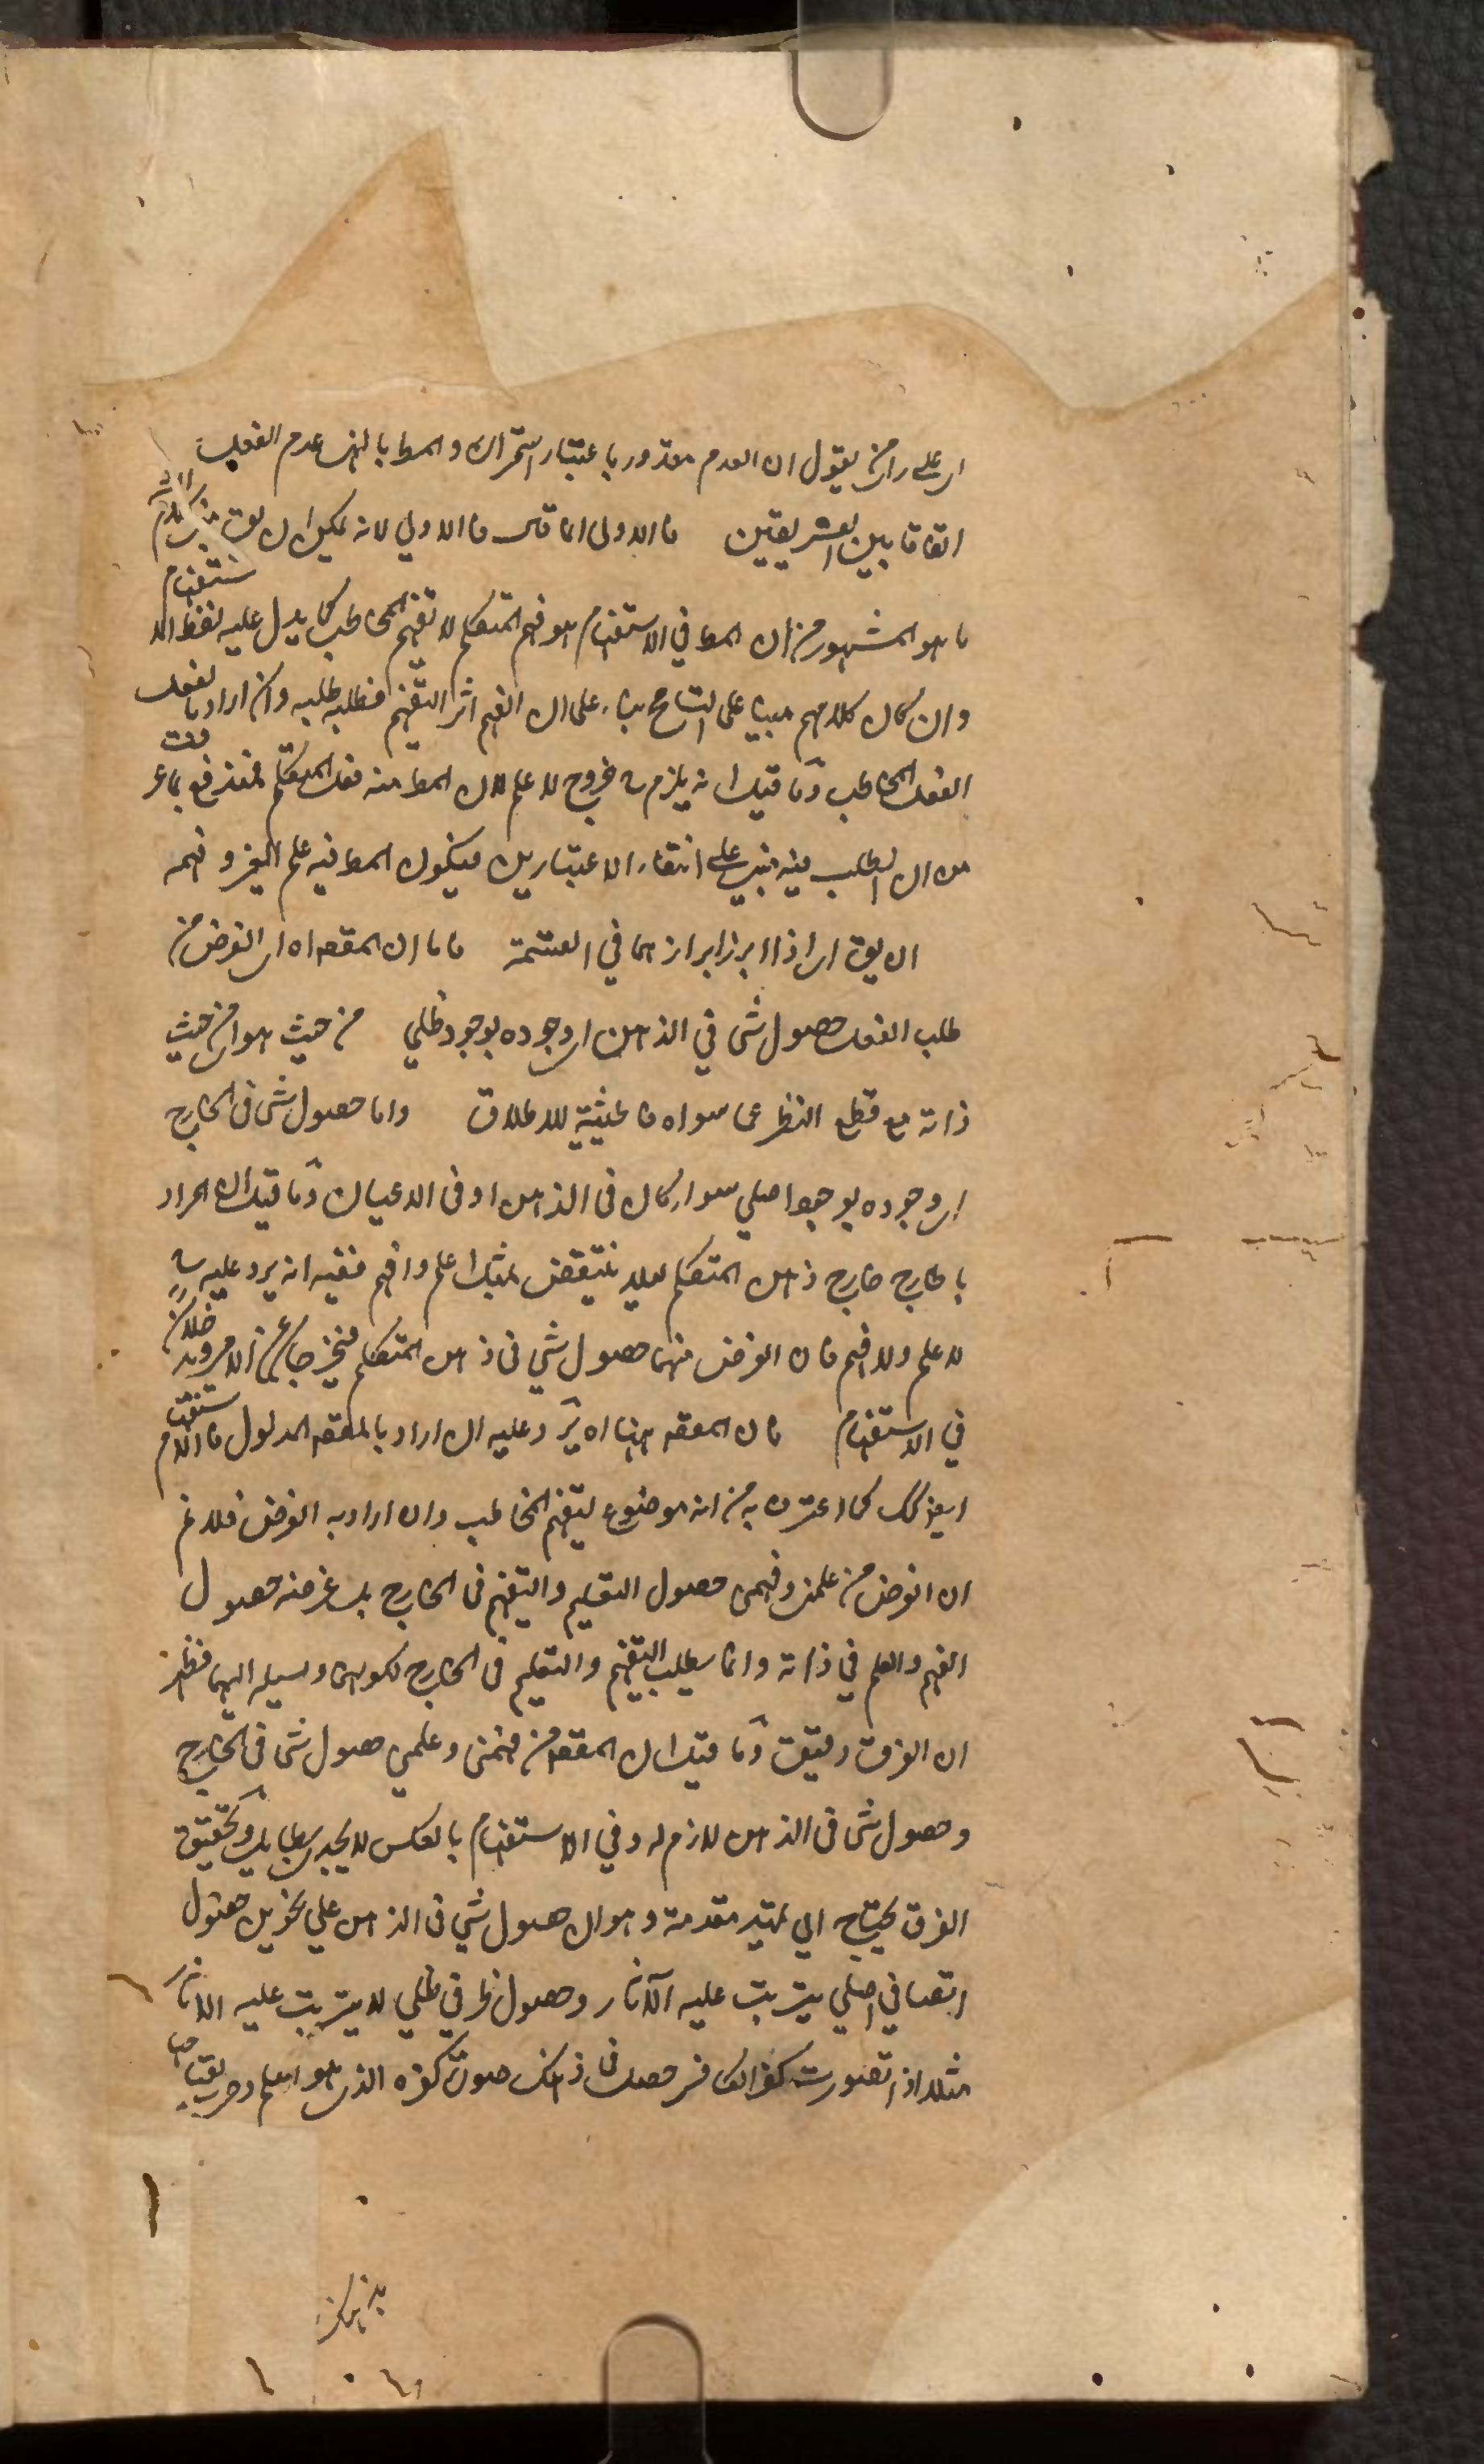 ای علی رای من یقول ان العدم مقدور باعتبار استمراره والمط بالنهی عدم الفعل
اتفاقا بین الفریقین فالاولی انما قال فالاولی لانه یمکن ان یق
ما هو المشهور من ان المط فی الاستفهام هو فهم المتکلم لا تفهیم المخاطب کما یدل علیه لفظ الاستفهام
وان کان کلامهم مبنیا علی التسامح بناء علی ان الفهم اثر التفهیم فطلبه طلبه وان اراد بالفعل
الفعل المخاطب وما قیل انه یلزم ح خروج لا علم لان المط منه فعل المتکلم فمندفع بما عرفت
من ان الطلب فیه مبنی علی انتفاء الاعتبارین فیکون المط فیه علم الغیر وفهمه
ان یق ای اذا ابرز ابرازهما فی القسمة فاما ان المقصود اه ای الغرض من
طلب الفعل حصول شی فی الذهن ای وجوده بوجود ظلی من حیث هو ای من حیث
ذاته مع قطع النظر عما سواه فالحیثیة للاطلاق واما حصول شی فی الخارج
ای وجوده بوجود اصلی سواء کان فی الذهن او فی الاعیان وما قیل ان المراد
بالخارج خارج ذهن المتکلم لئلا ینتقض بمثل اعلم وافهم ففیه انه یرد علیه ح
لا علم ولا فهم فان الغرض منهما حصول شی فی ذهن المتکلم فیخرجا عن الامر ویدخلان
فی الاستفهام فان المقصود ههنا اه یرد علیه ان اراد بالمقصود المدلول فالاستفهام
ایض کک کما اعترف به من انه موضوع لتفهیم المخاطب وان اراد به الغرض فلا نم
ان الغرض من علمنی وفهمنی حصول التعلیم والتفهیم فی الخارج بل غرضه حصول
الفهم والعلم فی ذاته وانما یطلب التفهیم والتعلیم فی الخارج لکونهما وسیلة الیهما فظهر
ان الفرق دقیق وما قیل ان المقصود من فهمنی وعلمنی حصول شی فی الخارج
وحصول شی فی الذهن لازم له وفی الاستفهام بالعکس لا یجدی بطائل وتحقیق
الفرق یحتاج الی تمهید مقدمة وهو ان حصول شی فی الذهن علی نحوین حصول
اتصافی اصلی یترتب علیه الآثار وحصول ظرفی ظلی لا یترتب علیه الاثار
مثلا اذا تصورت کفر الکافر حصل فی ذهنک صورة کفره الذی هو العلم